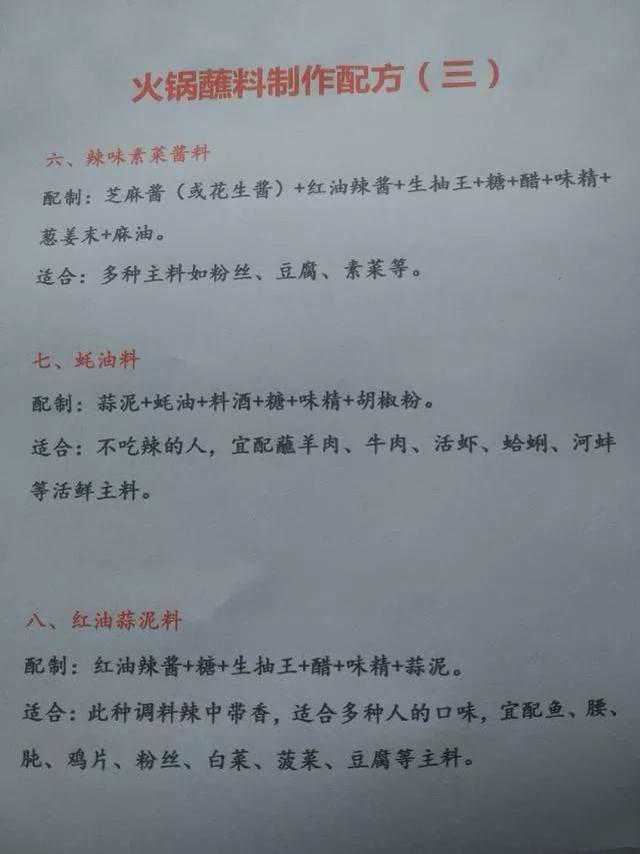 火锅蘸料制作配方（三）
六、辣味素菜酱料
配制：芝麻酱（或花生酱）+红油辣酱+生抽王+糖+醋+味精+
葱姜末+麻油。
适合：多种主料如粉丝、豆腐、素菜等。
七、蚝油料
配制：蒜泥+蚝油+料酒+糖+味精+胡椒粉。
适合：不吃辣的人，宜配蘸羊肉、牛肉、活虾、蛤蜊、河蚌
等活鲜主料。
八、红油蒜泥料
配制：红油辣酱+糖+生抽王+醋+味精+蒜泥。
适合：此种调料辣中带香，适合多种人的口味，宜配鱼、腰、
肫、鸡片、粉丝、白菜、菠菜、豆腐等主料。